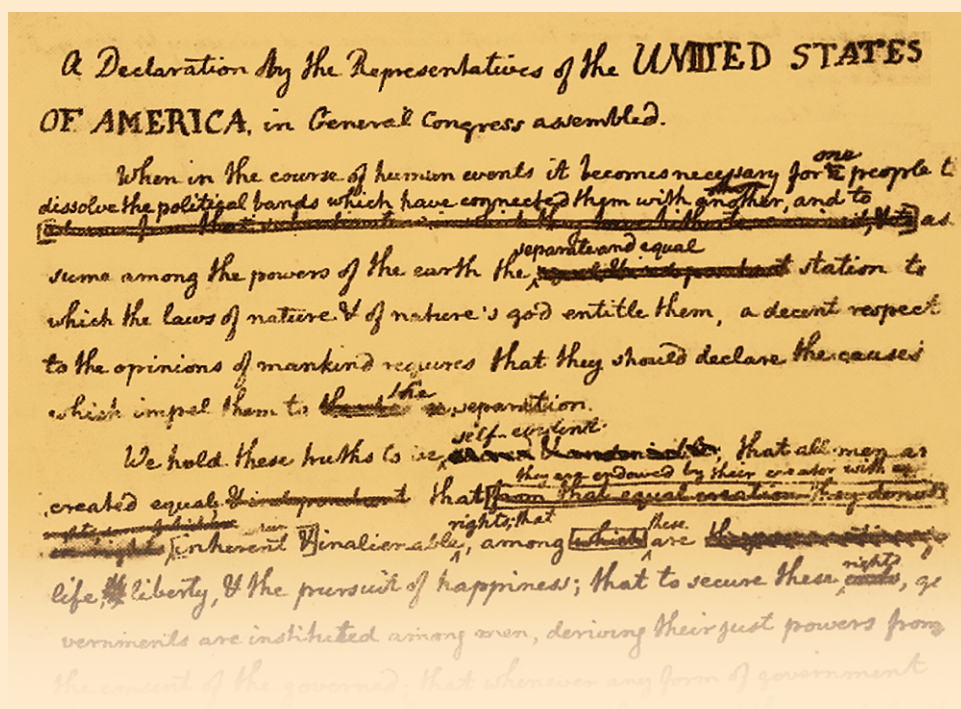 A Declaration by the Representatives of the UNITED STATES
OF AMERICA, in General Congress assembled.
When in the course of human events it becomes necessary for one people t
dissolve the political bands which have connected them with another, and to
as
separate and equal
sume among the powers of the earth the station to
which the laws of nature & of nature's god entitle them, a decent respect
to the opinions of mankind requires that they should declare the causes
which impel them to the separation.
self-evident
We hold these truths to be, that all men ar
they are endowed by their creator with
created equal & independant that from that equal creation they
rights; that these
inherent & inalienable, among which are
life, liberty, & the pursuit of happiness; that to secure these rights, go
vernments are instituted among men, deriving their just powers from
the consent of the governed; that whenever any form of government